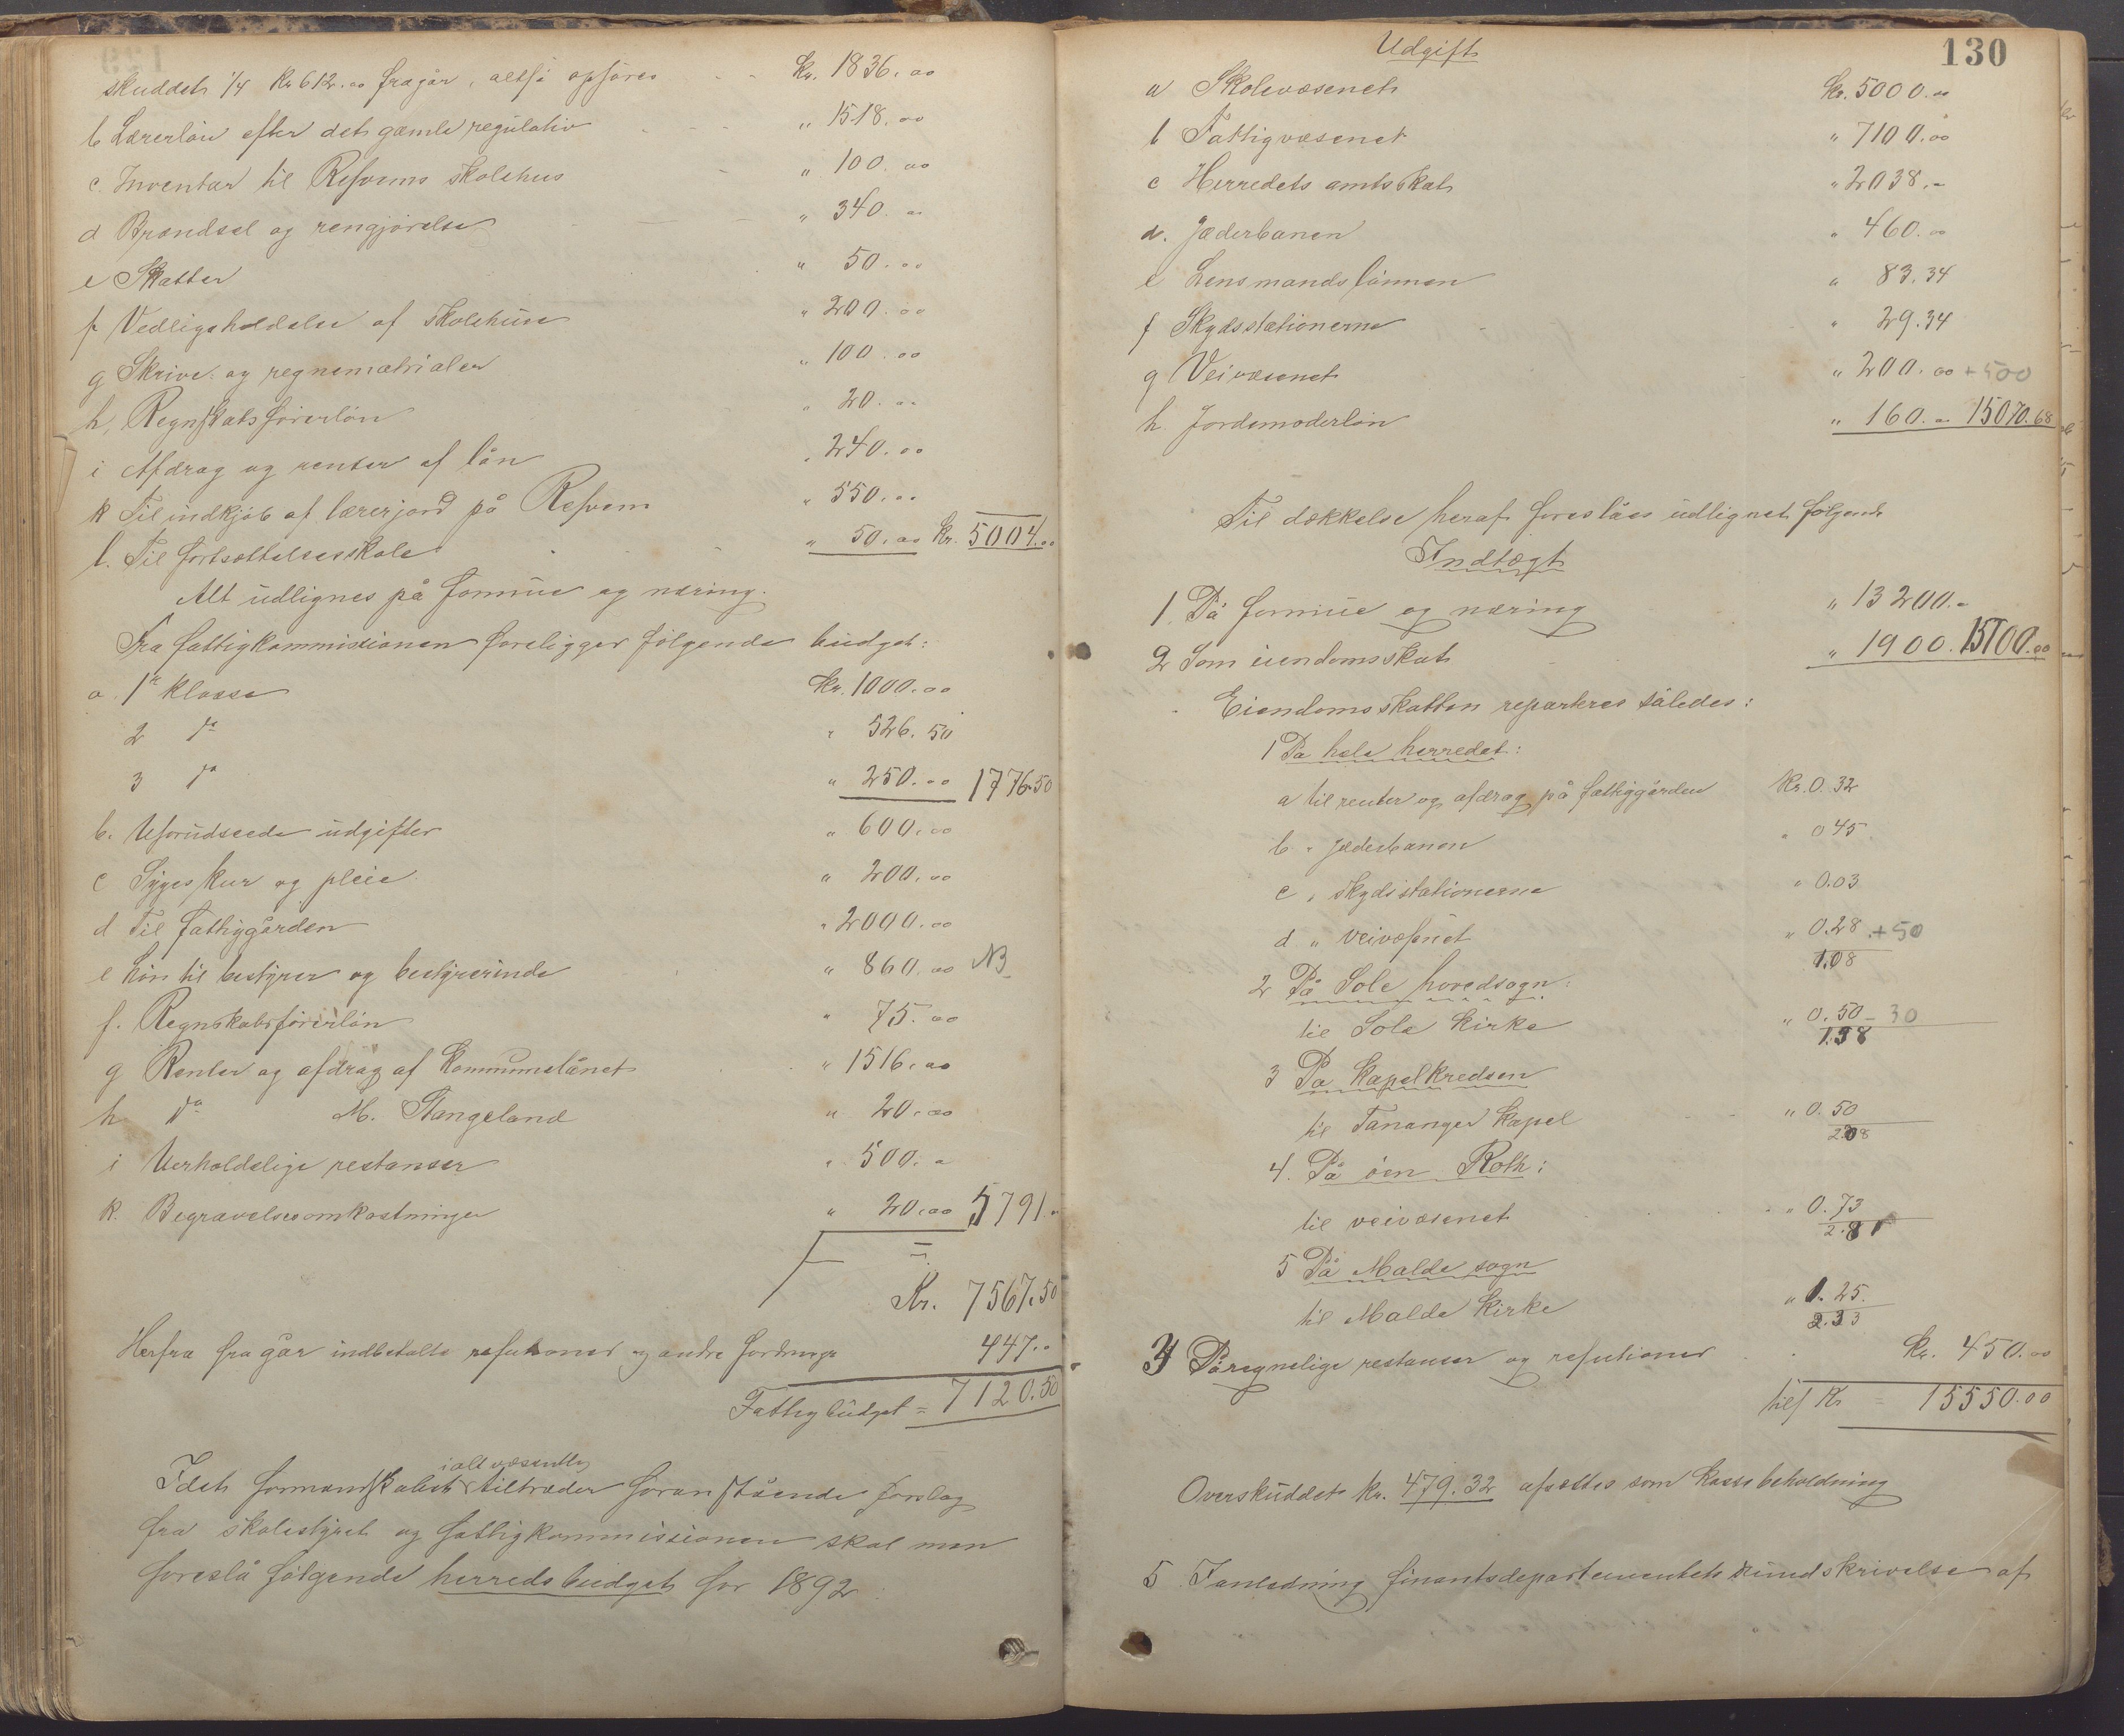 skuddets 1/4 Kr 612.00 fragår, altså opføres - - Kr. 1836.00
b Lærerløn efter det gamle regulativ - - - " 1518.00
c. Inventar til Refvems skolehus - " 100.00
d Brændsel og rengjørelse - - " 340.00
e Skatter " 50.00
f Vedligeholdelse af skolehuse " 200.00
g Skrive- og regnematrialer " 100.00
h, Regnskabsførerløn " 20.00
i Afdrag og renter af lån " 240.00
k Til indkjøb af lærerjord på Refvem " 550.00
l. Til fortsættelsesskole " 50.00 Kr. 5004.00
Alt udlignes på formue og næring.
Fra fattigkommissionen foreligger følgende budget:
a. 1ste klasse Kr. 1000.00
2 do " 526.50
3 do " 250.00 1776.50
b. Uforudseede udgifter " 600.00
c Syges kur og pleie " 200.00
d Til fattiggården " 2000.00
e Løn til bestyrer og bestyrerinde " 860.00 NB
f. Regnskabsførerløn " 75.00
g Renter og afdrag af kommunelånet " 1516.00
h do M. Stangeland " 20.00
i Uerholdelige restanser " 500.00
k. Begravelsesomkostninger " 20.00 5791.
Kr. 7567.50
Herfra fragår indbetalte refusioner og andre fordringer 447.00
Fattigbudget = 7120.50
i alt væsentlig
Idet formandskabet tiltræder foranstående forslag
fra skolestyret og fattigkommissionen skal man
foreslå følgende herredsbudget for 1892
130
Udgift
a Skolevæsenet Kr. 5000.00
b Fattigvæsenet " 7100.00
c Herredets amtsskat " 2038.-
d. Jæderbanen " 460.00
e Lensmandslønnen " 83.34
f Skydsstationerne " 29.34
g Veivæsenet " 200.00 + 500
h. Jordemoderløn " 160.00 15070.68
Til dækkelse heraf foreslåes udlignet følgende
Indtægt
1. På formue og næring " 13200.-
2 Som eiendomsskat " 1900. 15100.00
Eiendomsskatten reparteres således:
1 På hele herredet:
a til renter og afdrag på fattiggården Kr. 0.32
b " jæderbanen " 0 45
c " skydsstationerne " 0.03
d " veivæsenet " 0.28 + 50
1.08
2 På Sole hovedsogn:
til Sole kirke " 0.50 - 30
1.58
3 På kapelkredsen
til Tananger kapel " 0.50
2.08
4. På øen Roth:
til veivæsenet " 0.73
2.81
5 På Malde sogn
til Malde kirke " 1.25.
2.33
3 Påregnelige restanser og refutioner Kr. 450.00
tils Kr = 15550.00
Overskuddet kr. 479.32 afsættes som kassebeholdning
5. I anledning finantsdepartementets rundskrivelse af